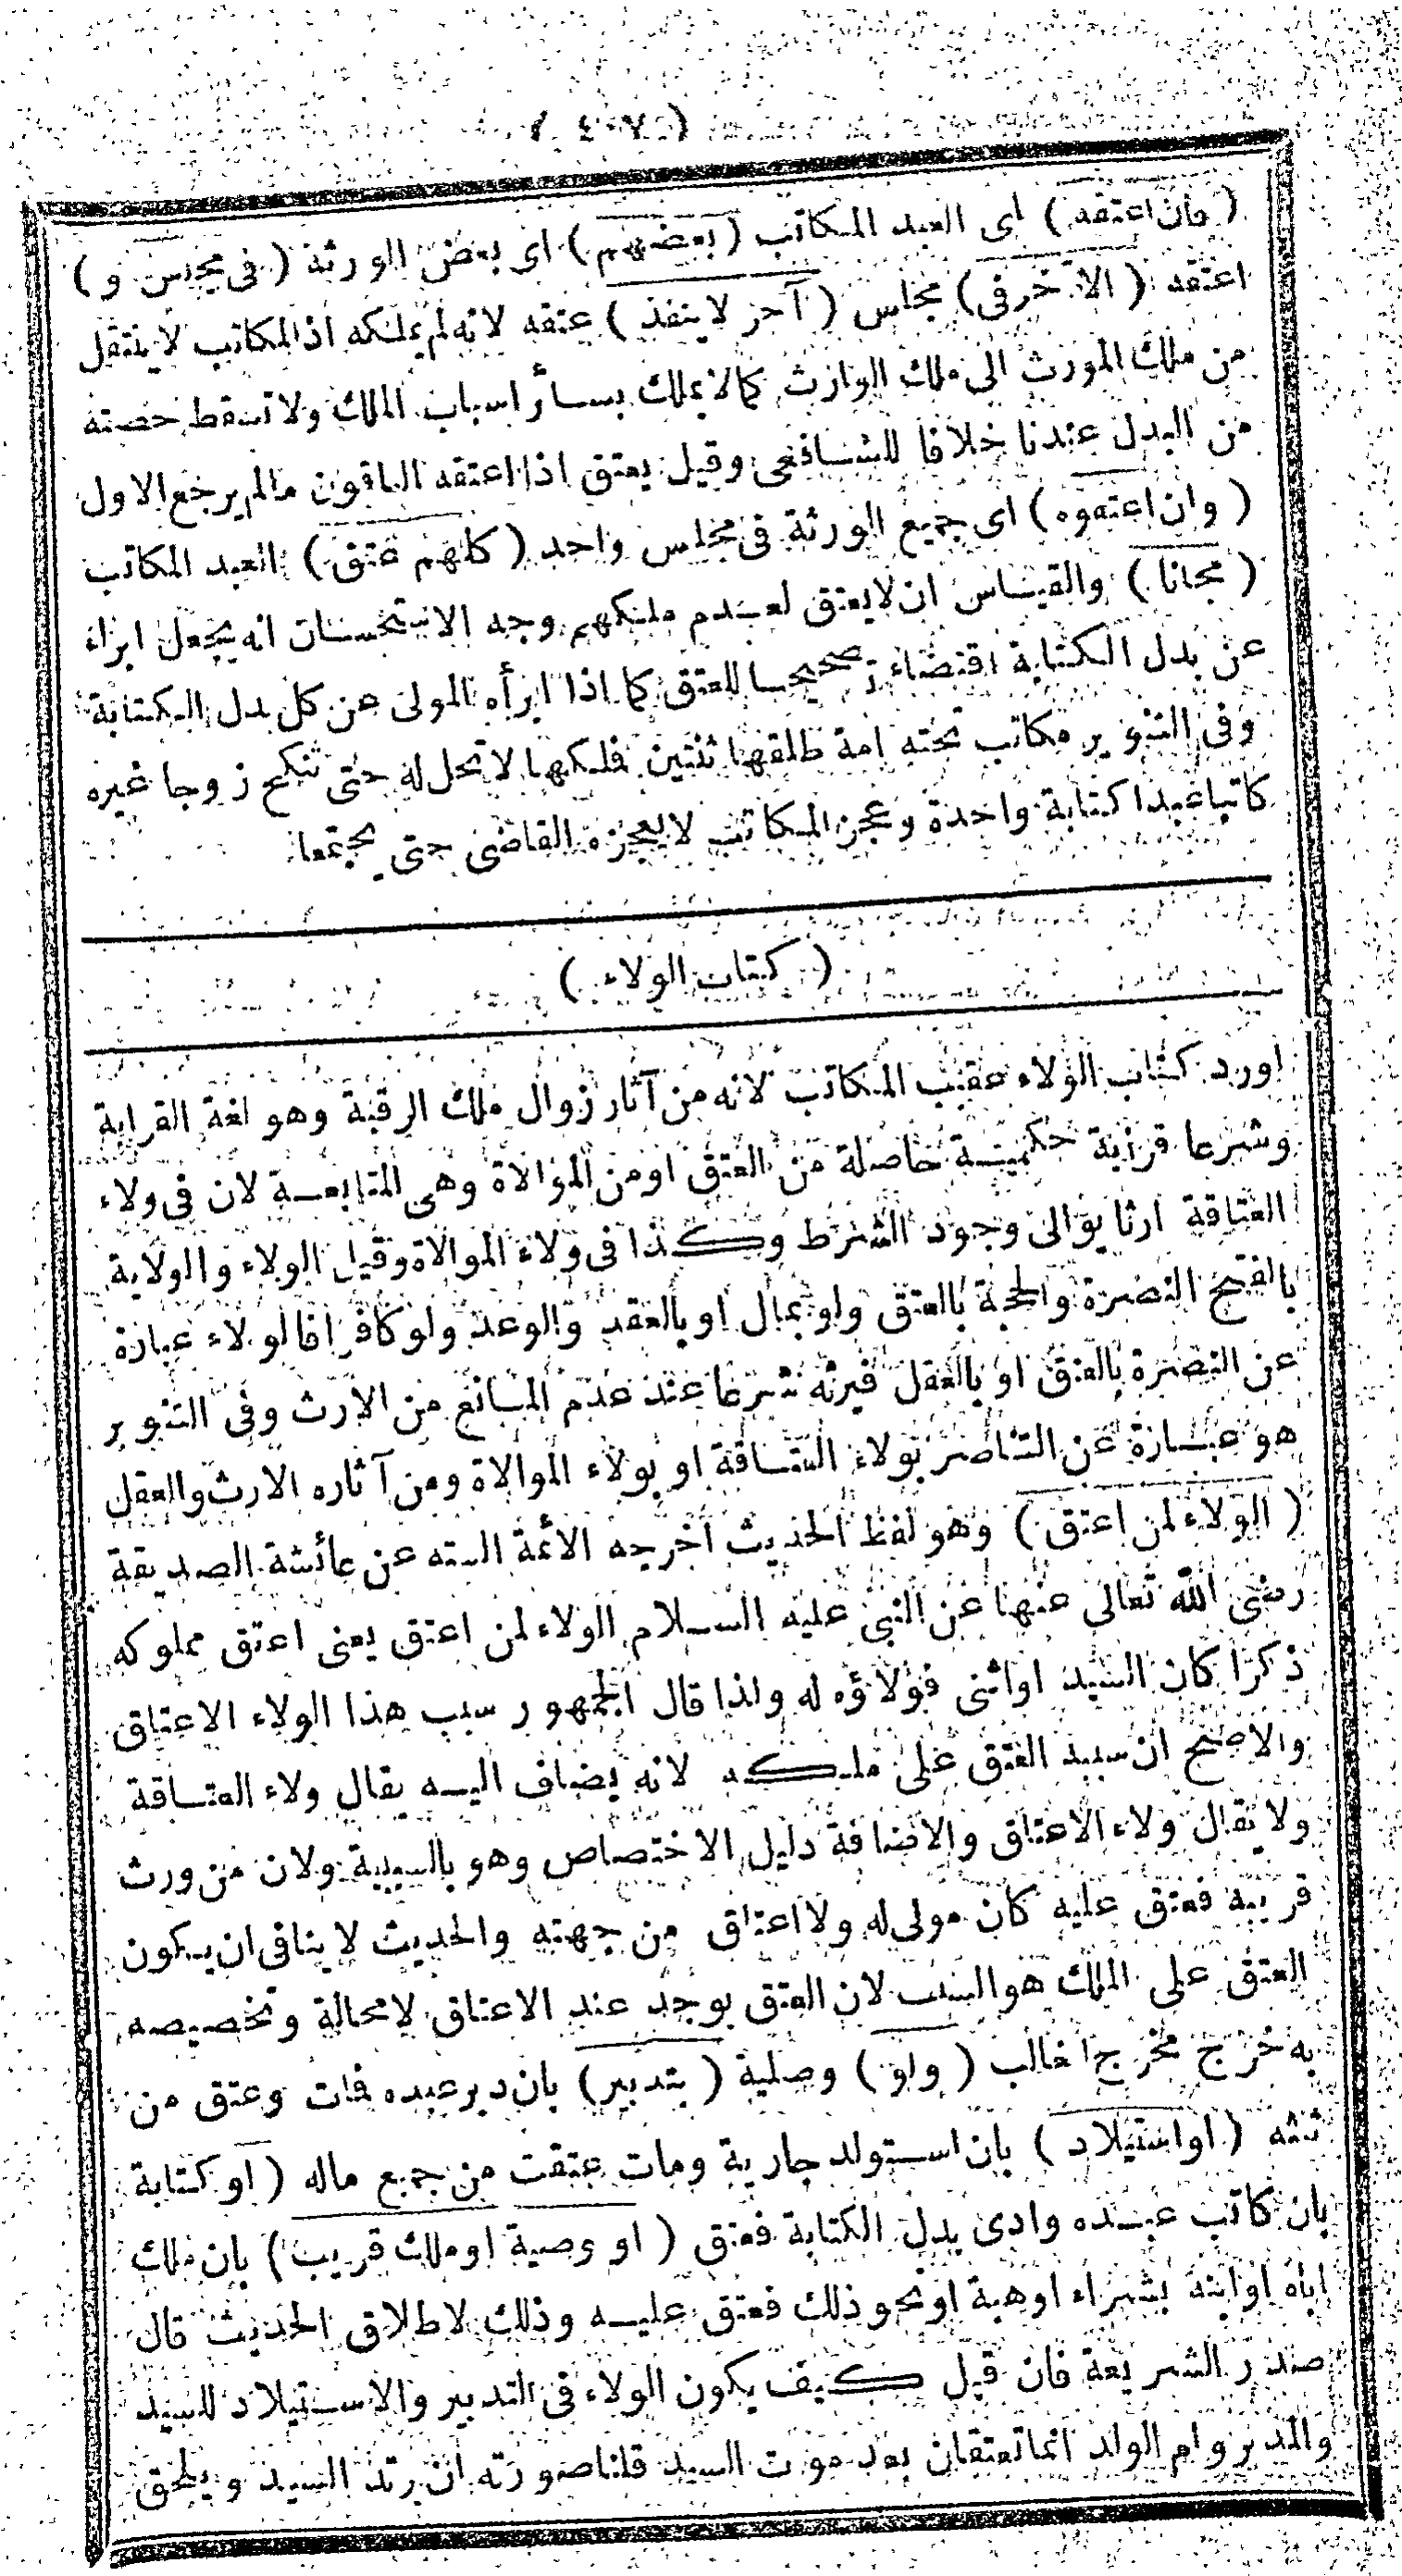 ( ٤٠٧ )
( فان اعتقه ) اى العبد المكاتب ( بعضهم ) اى بعض الورثة ( فى مجلس و )
اعتقه ( الآخر فى ) مجلس ( آخر لاينفذ ) عتقه لانه لم يملكه اذ المكاتب لاينتقل
من ملك المورث الى ملك الوارث كما لايملك بسائر اسباب الملك ولاتسقط حصته
من البدل عندنا خلافا للشافعى وقيل يعتق اذا اعتقه الباقون مالم يرجع الاول
( وان اعتقوه ) اى جميع الورثة فى مجلس واحد ( كلهم عتق ) العبد المكاتب
( مجانا ) والقياس ان لايعتق لعدم ملكهم وجه الاستحسان انه يجعل ابراء
عن بدل الكتابة اقتضاء تصحيحا للعتق كما اذا ابرأه المولى عن كل بدل الكتابة
وفى التنوير مكاتب تحته امة طلقها ثنتين فملكها لاتحل له حتى تنكح زوجا غيره
كاتبا عبدا كتابة واحدة وعجز المكاتب لايعجزه القاضى حتى يجتمعا
( كتاب الولاء )
اورد كتاب الولاء عقيب المكاتب لانه من آثار زوال ملك الرقبة وهو لغة القرابة
وشرعا قرابة حكمية حاصلة من العتق او من الموالاة وهى المتابعة لان فى ولاء
العتاقة ارثا يوالى وجود الشرط وكذا فى ولاء الموالاة وقيل الولاء والولاية
بالفتح النصرة والمحبة بالعتق ولو بمال او بالعقد والوعد ولو كافرا فالولاء عبارة
عن النصرة بالعتق او بالعقل فيرثه شرعا عند عدم المانع من الارث وفى التنوير
هو عبارة عن التناصر بولاء العتاقة او بولاء الموالاة ومن آثاره الارث والعقل
( الولاء لمن اعتق ) وهو لفظ الحديث اخرجه الائمة الستة عن عائشة الصديقة
رضى الله تعالى عنها عن النبى عليه السلام الولاء لمن اعتق يعنى اعتق مملوكه
ذكرا كان السيد او انثى فولاؤه له ولذا قال الجمهور سبب هذا الولاء الاعتاق
والاصح ان سببه العتق على ملكه لانه يضاف اليه يقال ولاء العتاقة
ولايقال ولاء الاعتاق والاضافة دليل الاختصاص وهو بالسببية ولان من ورث
قريبه فعتق عليه كان مولى له ولا اعتاق من جهته والحديث لاينافى ان يكون
العتق على الملك هو السبب لان العتق يوجد عند الاعتاق لامحالة وتخصيصه
به خرج مخرج الغالب ( ولو ) وصلية ( بتدبير ) بان دبر عبده فمات وعتق من
ثلثه ( او استيلاد ) بان استولد جارية ومات عتقت من جميع ماله ( او كتابة
بان كاتب عبده وادى بدل الكتابة فعتق ( او وصية او ملك قريب ) بان ملك
اباه او ابنه بشراء او هبة او نحو ذلك فعتق عليه وذلك لاطلاق الحديث قال
صدر الشريعة فان قيل كيف يكون الولاء فى التدبير والاستيلاد للسيد
والمدبر وام الولد انما تعتقان بعد موت السيد قلنا صورته ان يرتد السيد ويلحق